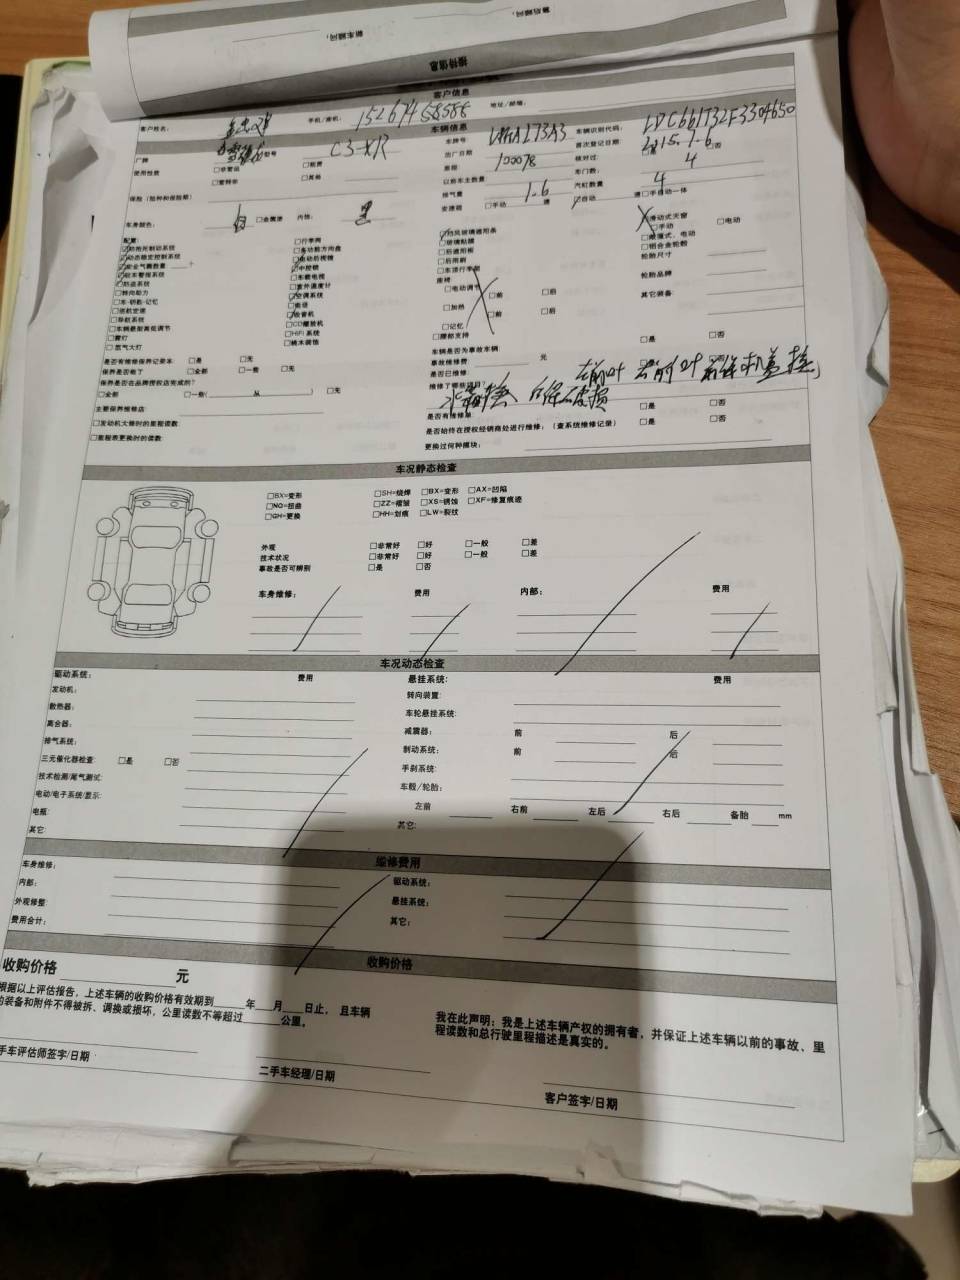 接待信息
客户信息
客户姓名： 手机/座机： 15267458588 地址/邮编：
车辆信息
厂牌 型号 C3-XR 车牌号 车辆识别代码： LDC661T32F3304650
使用性质 □非营运 □租赁 出厂日期 首次登记日期： 2015.1.6
□营转非 □其他 里程 100078 核对过： □是 □否
以前车主数量 车门数： 4
保险（险种和保险期） 排气量 1.6 汽缸数量 4
变速箱 □手动 速 □自动 速□手自动一体
车身颜色： 白 □金属漆 内饰： 黑
配置：
□防抱死制动系统 □行李网 □挡风玻璃遮阳条 □滑动式天窗
□动态稳定控制系统 □多功能方向盘 □玻璃贴膜 □手动 □电动
□安全气囊数量 个 □电动后视镜 □后遮阳板 □敞篷式，电动
□驻车警报系统 □中控锁 □后雨刷 □铝合金轮毂
□防盗系统 □车载电视 □车顶行李架 轮胎尺寸
□转向助力 □室外温度计 座椅：
□车-钥匙-记忆 □空调系统 □电动调节 □前 □后 轮胎品牌
□巡航定速 □音响 □加热 □前 □后 其它装备：
□导航系统 □收音机 □记忆
□车辆最挺高低调节 □CD播放机 □腰部支持
□雾灯 □HiFi 系统
□氙气大灯 □桃木装饰
是否有维修保养记录本 □是 □无 车辆是否为事故车辆： □是 □否
保养是否做了 □全部 □一些 □无 事故维修费 元
保养是否在品牌授权店完成的？ 是否已维修 □是 □否
□全部 □一些( 从 ) □无 维修了哪些项目？ 左前叶 右前叶 机盖 换
水箱换
主要保养维修店： 是否有维修单 □是 □否
□发动机大修时的里程读数 是否始终在授权经销商处进行维修：（查系统维修记录） □是 □否
□里程表更换时的读数 更换过何种模块：
车况静态检查
□BX=变形 □SH=烧焊 □BX=变形 □AX=凹陷
□NQ=扭曲 □ZZ=褶皱 □XS=锈蚀 □XF=修复痕迹
□GH=更换 □HH=划痕 □LW=裂纹
外观 □非常好 □好 □一般 □差
技术状况 □非常好 □好 □一般 □差
事故是否可辨别 □是 □否
车身维修： 费用 内部： 费用
车况动态检查
驱动系统： 费用 悬挂系统： 费用
发动机： 转向装置：
散热器： 车轮悬挂系统：
离合器： 减震器： 前 后
排气系统： 制动系统： 前 后
三元催化器检查： □是 □否 手刹系统：
技术检测/尾气测试： 车毂/轮胎：
电动/电子系统/显示： 左前 右前 左后 右后 备胎 mm
电瓶： 其它：
其它：
维修费用
车身维修： 驱动系统：
内部： 悬挂系统：
外观修整： 其它：
费用合计：
收购价格
收购价格 元
根据以上评估报告，上述车辆的收购价格有效期到 年 月 日止，且车辆
的装备和附件不得被拆、调换或损坏，公里读数不等超过 公里。
我在此声明：我是上述车辆产权的拥有者，并保证上述车辆以前的事故、里
程读数和总行驶里程描述是真实的。
手车评估师签字/日期 二手车经理/日期 客户签字/日期